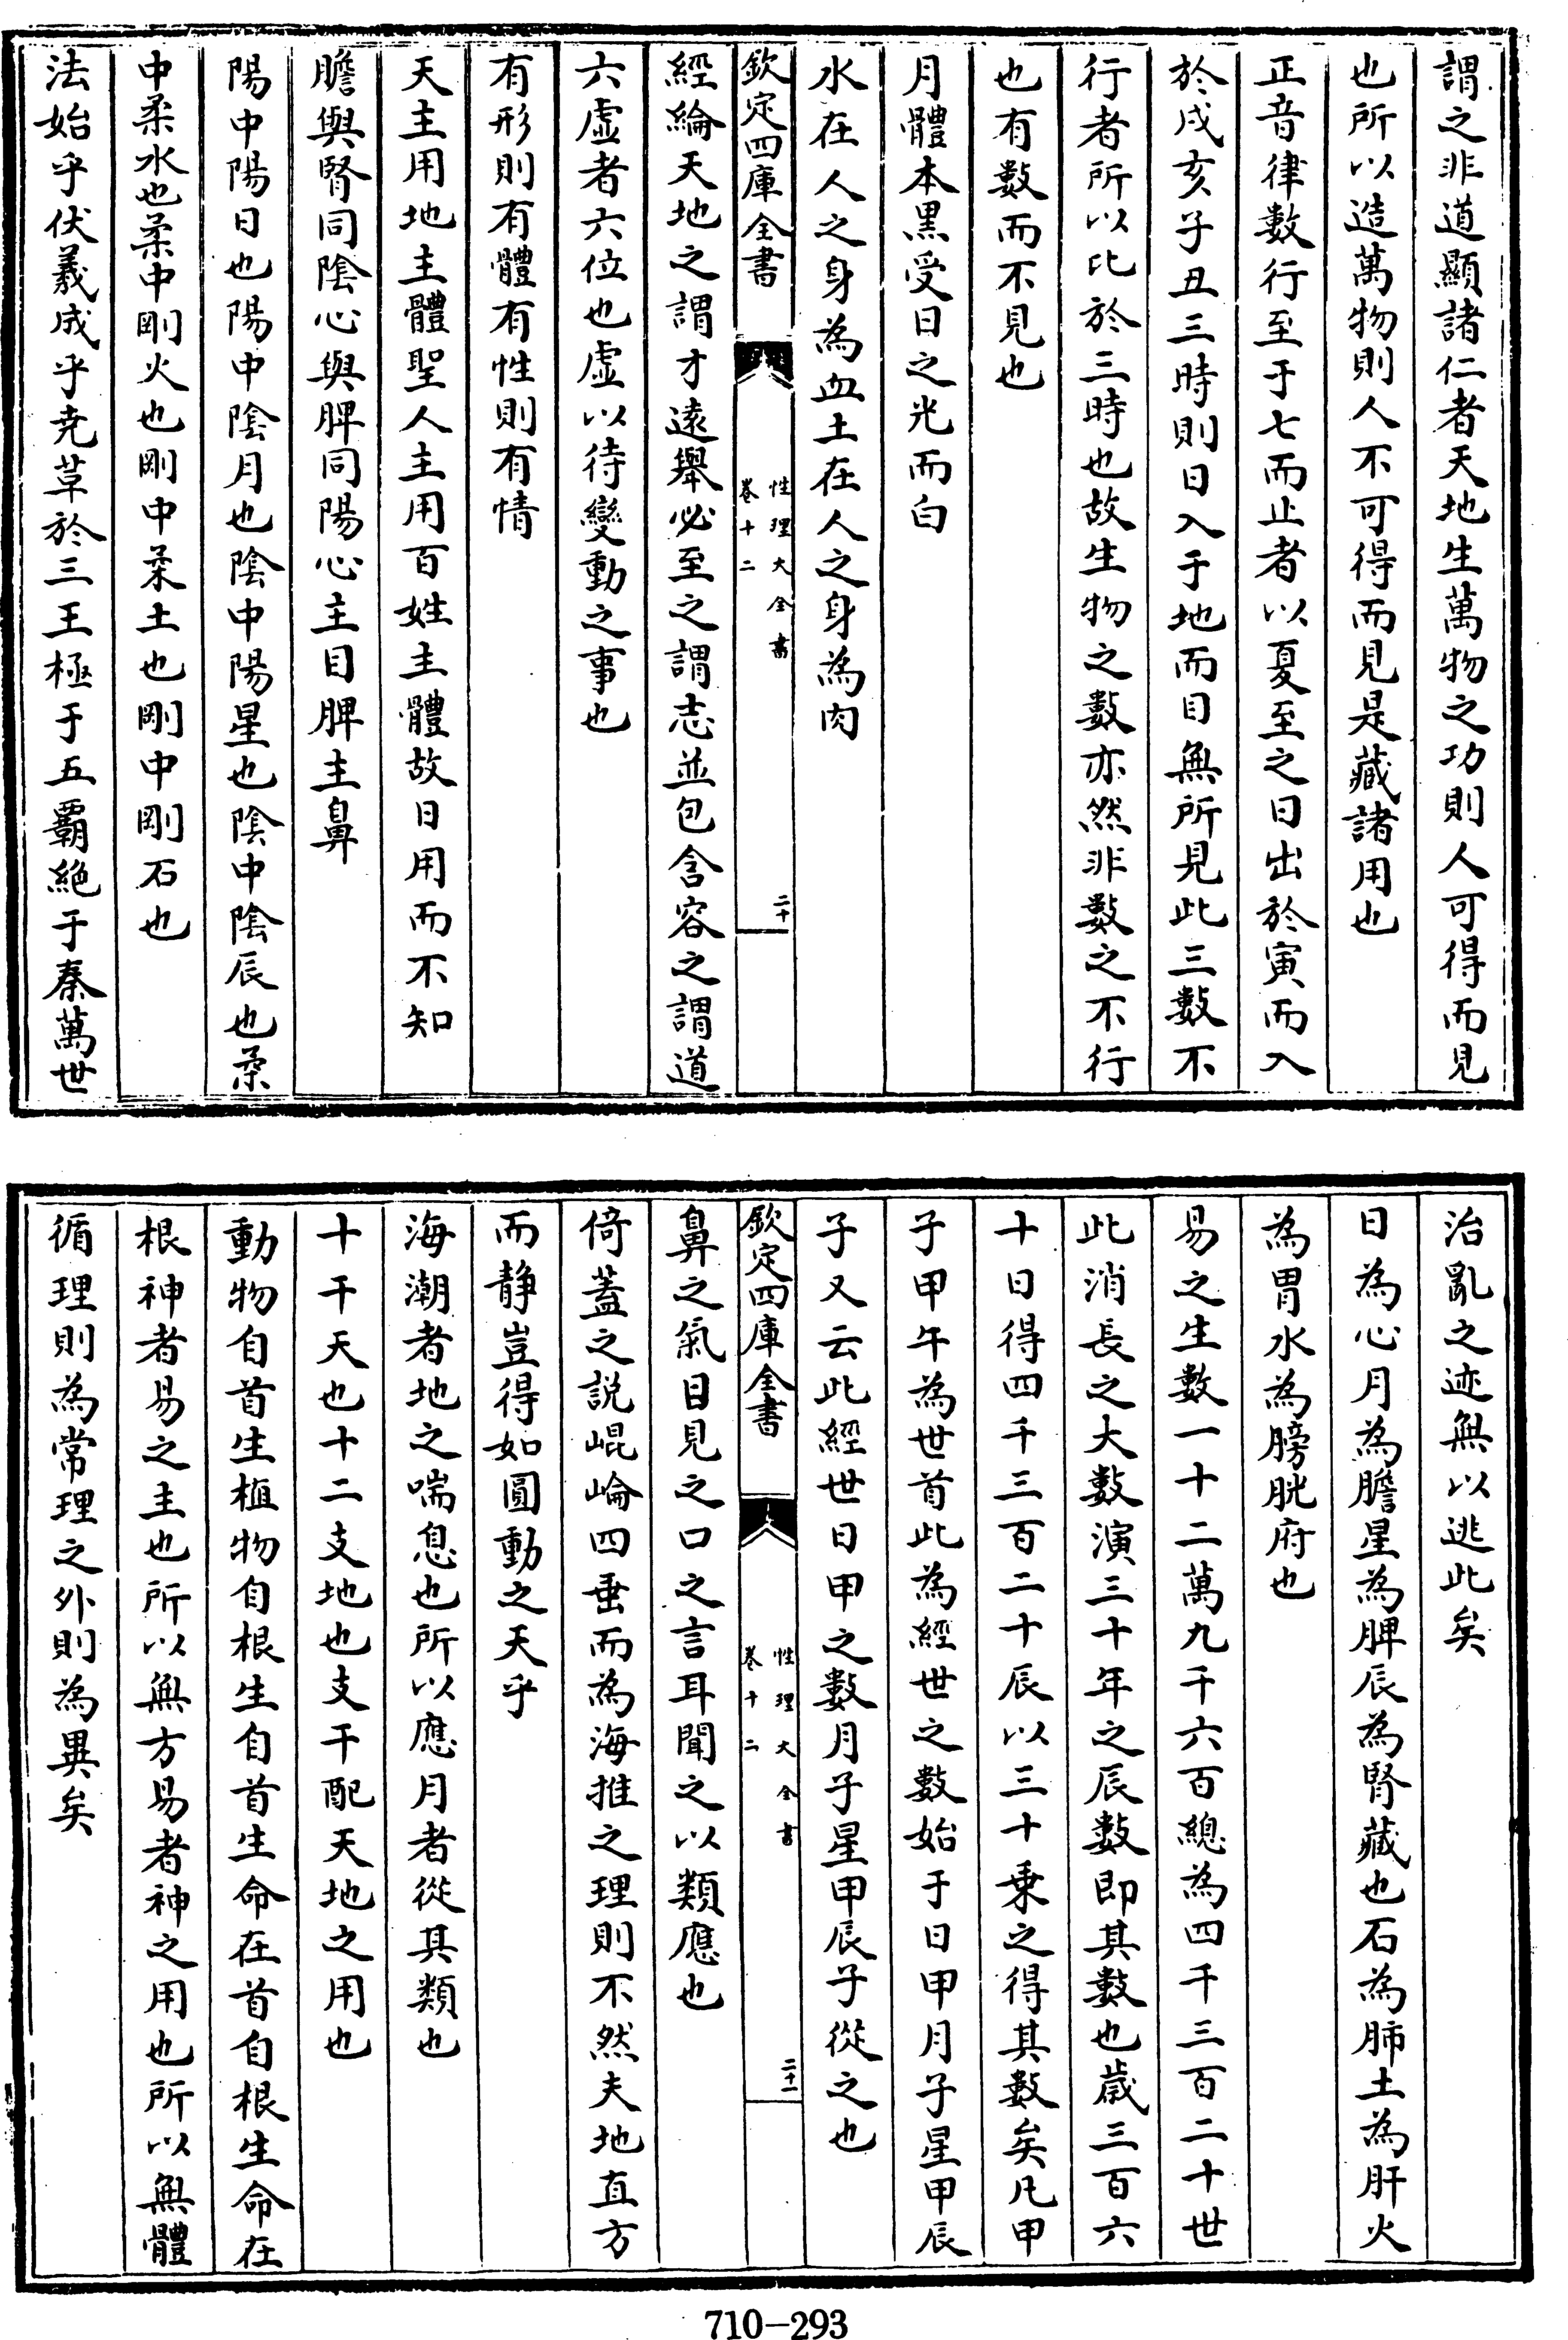 謂之非道顯諸仁者天地生萬物之功則人可得而見
也所以造萬物則人不可得而見是藏諸用也
正音律數行至于七而止者以夏至之日出於寅而入
於戌亥子丑三時則日入于地而目無所見此三數不
行者所以比於三時也故生物之數亦然非數之不行
也有數而不見也
月體本黑受日之光而白
水在人之身為血土在人之身為肉
欽定四庫全書
性理大全書
卷十二
二十
經綸天地之謂才遠舉必至之謂志並包含容之謂道
六虛者六位也虛以待變動之事也
有形則有體有性則有情
天主用地主體聖人主用百姓主體故日用而不知
膽與腎同陰心與脾同陽心主目脾主鼻
陽中陽日也陽中陰月也陰中陽星也陰中陰辰也柔
中柔水也柔中剛火也剛中柔土也剛中剛石也
法始乎伏羲成乎堯革於三王極于五霸絶于秦萬世
治亂之迹無以逃此矣
日為心月為膽星為脾辰為腎藏也石為肺土為肝火
為胃水為膀胱府也
易之生數一十二萬九千六百總為四千三百二十世
此消長之大數演三十年之辰數即其數也歲三百六
十日得四千三百二十辰以三十乘之得其數矣凡甲
子甲午為世首此為經世之數始于日甲月子星甲辰
子又云此經世日甲之數月子星甲辰子從之也
欽定四庫全書
性理大全書
卷十二
二十一
鼻之氣目見之口之言耳聞之以類應也
倚蓋之說崐崘四垂而為海推之理則不然夫地直方
而静豈得如圓動之天乎
海潮者地之喘息也所以應月者從其類也
十干天也十二支地也支干配天地之用也
動物自首生植物自根生自首生命在首自根生命在
根神者易之主也所以無方易者神之用也所以無體
循理則為常理之外則為異矣
710-293